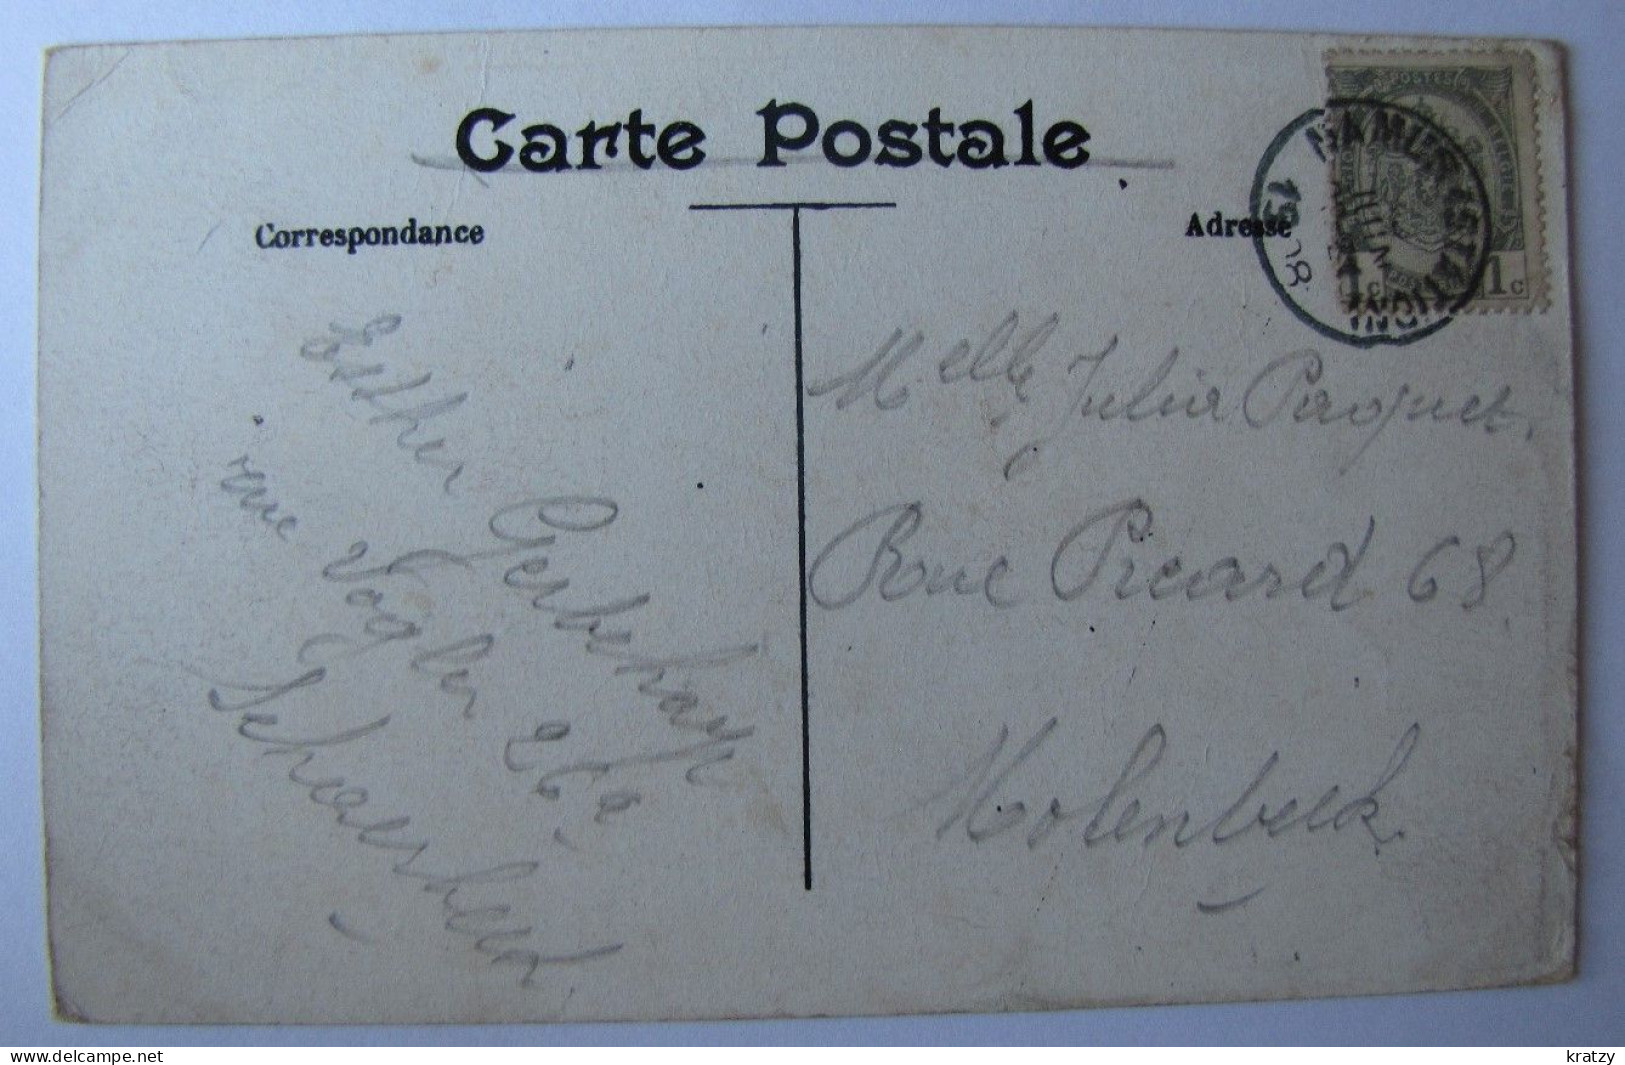 Carte Postale
Correspondance
Adresse
POSTES
NAMUR (STATION)
1908
1c
1c
Esther Gerbehaye
rue Vogler 26a
Schaerbeek
Melle Julia Paquet.
Rue Picard 68
Molenbeek
delcampe.net
kratzy